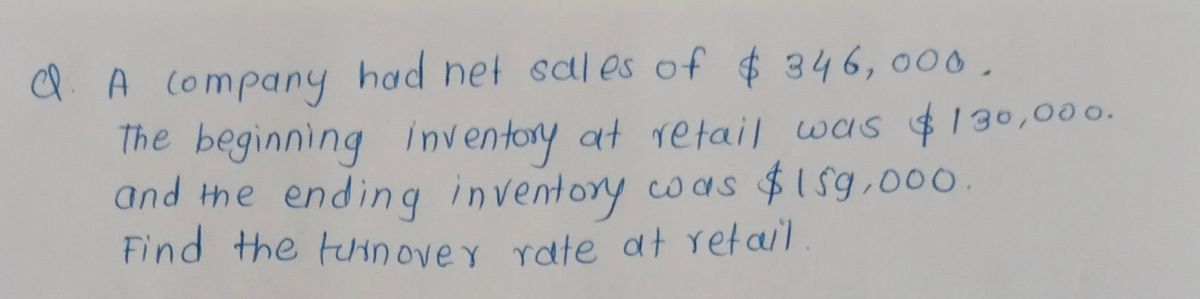 Q. A company had net sales of $ 346,000.
The beginning inventory at retail was $130,000.
and the ending inventory was $159,000.
Find the turnover rate at retail.